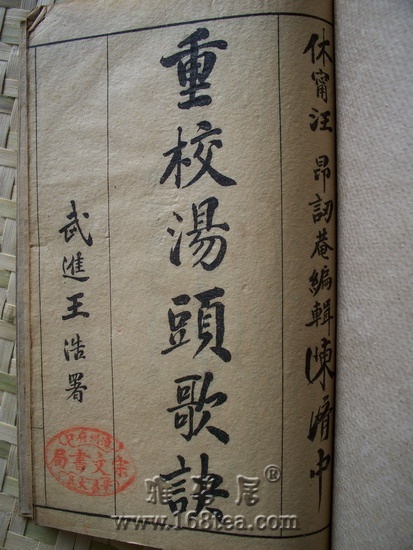 休甯汪 昂訒菴編輯陳中
重校湯頭歌訣
武進王浩署
文書局
雅居®
www.168tea.com